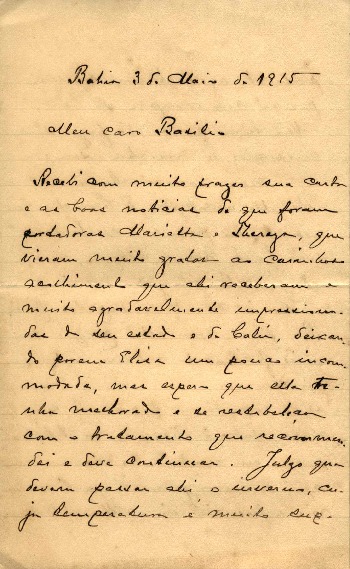 Bahia 3 de Maio de 1915
Meu caro Basilio
Recebi com muito prazer sua carta
e as boas noticias de que foram
portadoras Marietta e Thereza, que
vieram muito gratas ao carinhoso
acolhimento que ahi receberam e
muito agradavelmente impressiona-
das de seu estado e de Calú, deixan-
do porem Elisa um pouco incom-
modada, mas espero que ella te-
nha melhorado e se restabeleça
com o tratamento que recommen-
dei e deve continuar. Julgo que
devem passar ahi o inverno, cu-
ja temperatura é muito sup-